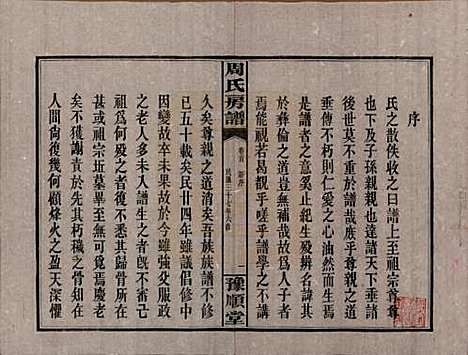 序
氏之散佚收之曰譜上至祖宗尊尊
也下及子孫親親也達諸天下垂諸
後世莫不重于譜哉庶乎尊親之道
垂傳不朽則仁愛之心油然而生
是譜者之意奚止紀生歿辨名諱其
於彝倫之道豈無補哉故為人子者
焉能視若曷觀乎嗟乎譜學之不講
周氏房譜
卷首 新序
民國三十七年
二
豫順堂
久矣尊親之道消矣吾族族譜不修
已五十載矣民廿四年雖議倡修中
因變故卒未果於今雖強從事
之老者多未入譜生之者旣不斷者
祖為何人故不悉其歸骨所在
甚或有祖宗坵墓畢至莫辨焉慶老
矣不獲其祖于先其朽穢之骨知在
人間尚復幾何顧烽火之盈天深懼